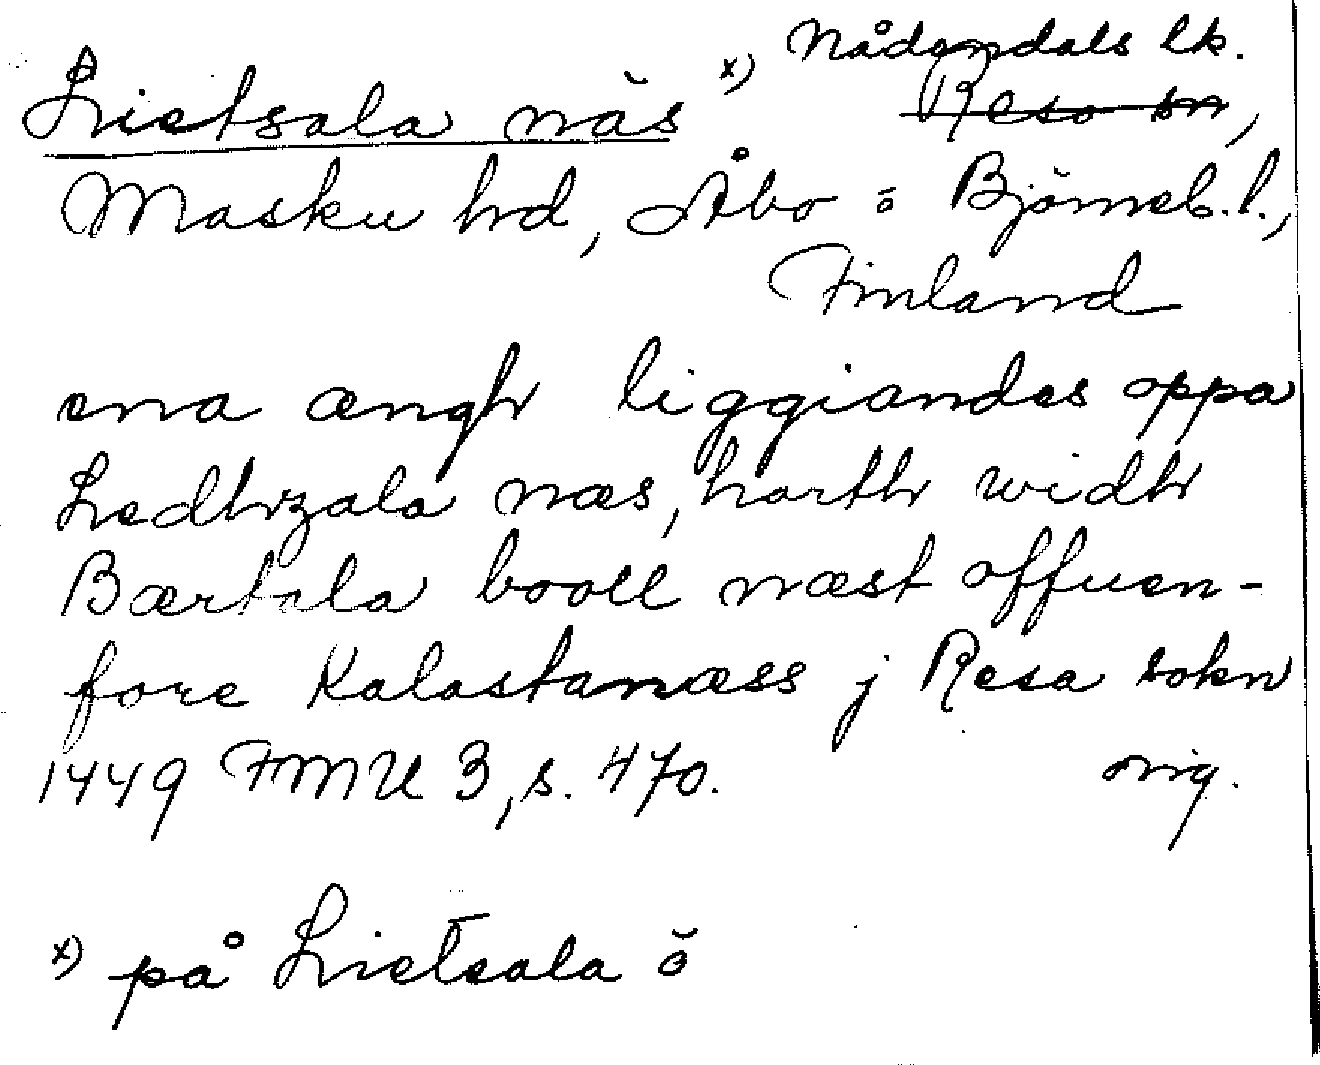 Lietsala näs x) Nådendals lk.
Reso sn,
Masku hd, Åbo o Björneb. l.,
Finland
ena ængh liggiandes oppa
Ledhzala næs, harth widh
Bærtala booll næst offuen-
fore Kalastanæss j Resa sokn
1449 FMU 3, s. 470. orig.
x) på Lietsala ö